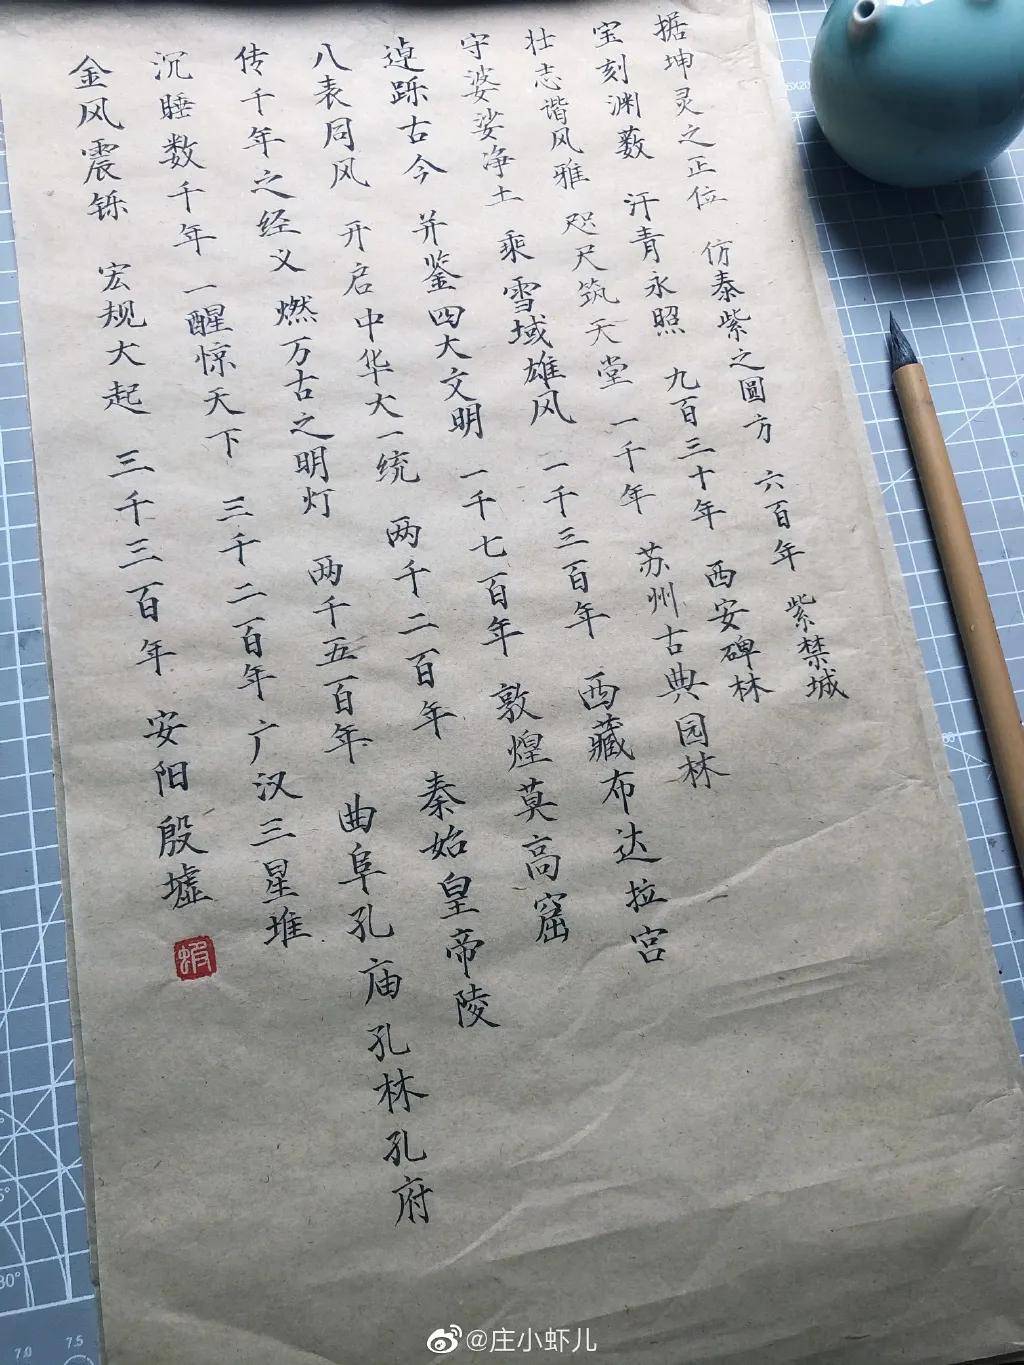 据坤灵之正位 仿泰紫之圆方 六百年 紫禁城
宝刻渊薮 汗青永照 九百三十年 西安碑林
壮志谐风雅 咫尺筑天堂 一千年 苏州古典园林
守婆娑净土 乘雪域雄风 一千三百年 西藏布达拉宫
逴跞古今 并鉴四大文明 一千七百年 敦煌莫高窟
八表同风 开启中华大一统 两千二百年 秦始皇帝陵
传千年之经义 燃万古之明灯 两千五百年 曲阜孔庙孔林孔府
沉睡数千年 一醒惊天下 三千二百年 广汉三星堆
金风震铄 宏规大起 三千三百年 安阳殷墟
虾
@庄小虾儿
7.0
7.5